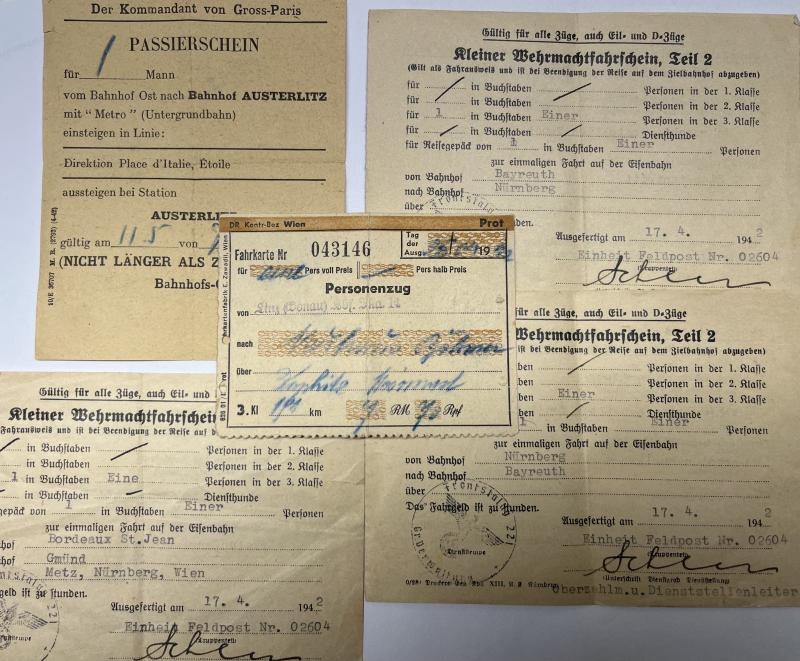 Der Kommandant von Gross-Paris
PASSIERSCHEIN
für 1 Mann
vom Bahnhof Ost nach Bahnhof AUSTERLITZ
mit "Metro" (Untergrundbahn)
einsteigen in Linie:
Direktion Place d'Italie, Étoile
aussteigen bei Station
AUSTERLITZ
gültig am 11 5 von
(NICHT LÄNGER ALS
Bahnhofs-
Gültig für alle Züge, auch Eil- und D-Züge
Kleiner Wehrmachtfahrschein, Teil 2
(Gilt als Fahrausweis und ist bei Beendigung der Reise auf dem Zielbahnhof abzugeben)
für / in Buchstaben / Personen in der 1. Klasse
für / in Buchstaben / Personen in der 2. Klasse
für 1 in Buchstaben Einer Personen in der 3. Klasse
für / in Buchstaben / Diensthunde
für Reisegepäck von 1 in Buchstaben Einer Personen
zur einmaligen Fahrt auf der Eisenbahn
von Bahnhof Bayreuth
nach Bahnhof Nürnberg
über
Frontstalag
stunden.
Ausgefertigt am 17. 4. 1942
Einheit Feldpost Nr. 02604
DR. Kontr-Bez Wien Prot
Fahrkarte Nr 043146
Tag der Ausg 19
für eine Pers voll Preis Pers halb Preis
Personenzug
von Linz (Donau) Bbf. Ska. 14
nach
über
3. Kl km RM Rpf
für alle Züge, auch Eil- und D-Züge
Wehrmachtfahrschein, Teil 2
ist bei Beendigung der Reise auf dem Zielbahnhof abzugeben)
ben Personen in der 1. Klasse
ben Personen in der 2. Klasse
ben Einer Personen in der 3. Klasse
ben / Diensthunde
1 Einer Personen
zur einmaligen Fahrt auf der Eisenbahn
von Bahnhof Nürnberg
nach Bahnhof Bayreuth
über
Das Fahrgeld ist zu stunden.
Frontstalag 221
Dienstgruppe
Ausgefertigt am 17. 4. 1942
Einheit Feldpost Nr. 02604
(Truppenteil)
(Unterschrift Dienstgrad Dienststellung)
Oberzahlm.u.Dienststellenleiter
Gültig für alle Züge, auch Eil- und D
Kleiner Wehrmachtfahrschein
Fahrausweis und ist bei Beendigung der Reise auf
/ in Buchstaben / Personen in der 1. Klasse
in Buchstaben Personen in der 2. Klasse
1 in Buchstaben Eine Personen in der 3. Klasse
in Buchstaben / Diensthunde
gepäck von 1 in Buchstaben Einer Personen
zur einmaligen Fahrt auf der Eisenbahn
hof Bordeaux St.Jean
hof Gmünd
Metz, Nürnberg, Wien
geld ist zu stunden.
221
Ausgefertigt am 17. 4. 1942
Einheit Feldpost Nr. 02604
(Truppenteil)